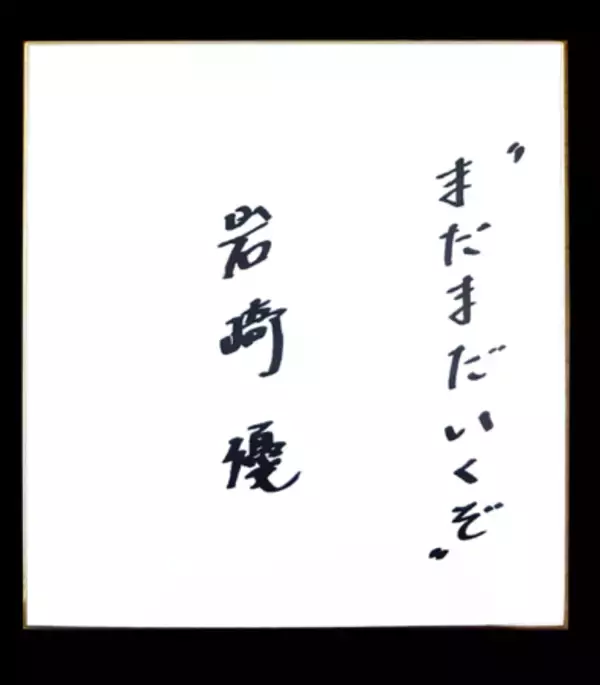 "まだまだいくぞ"
岩崎優